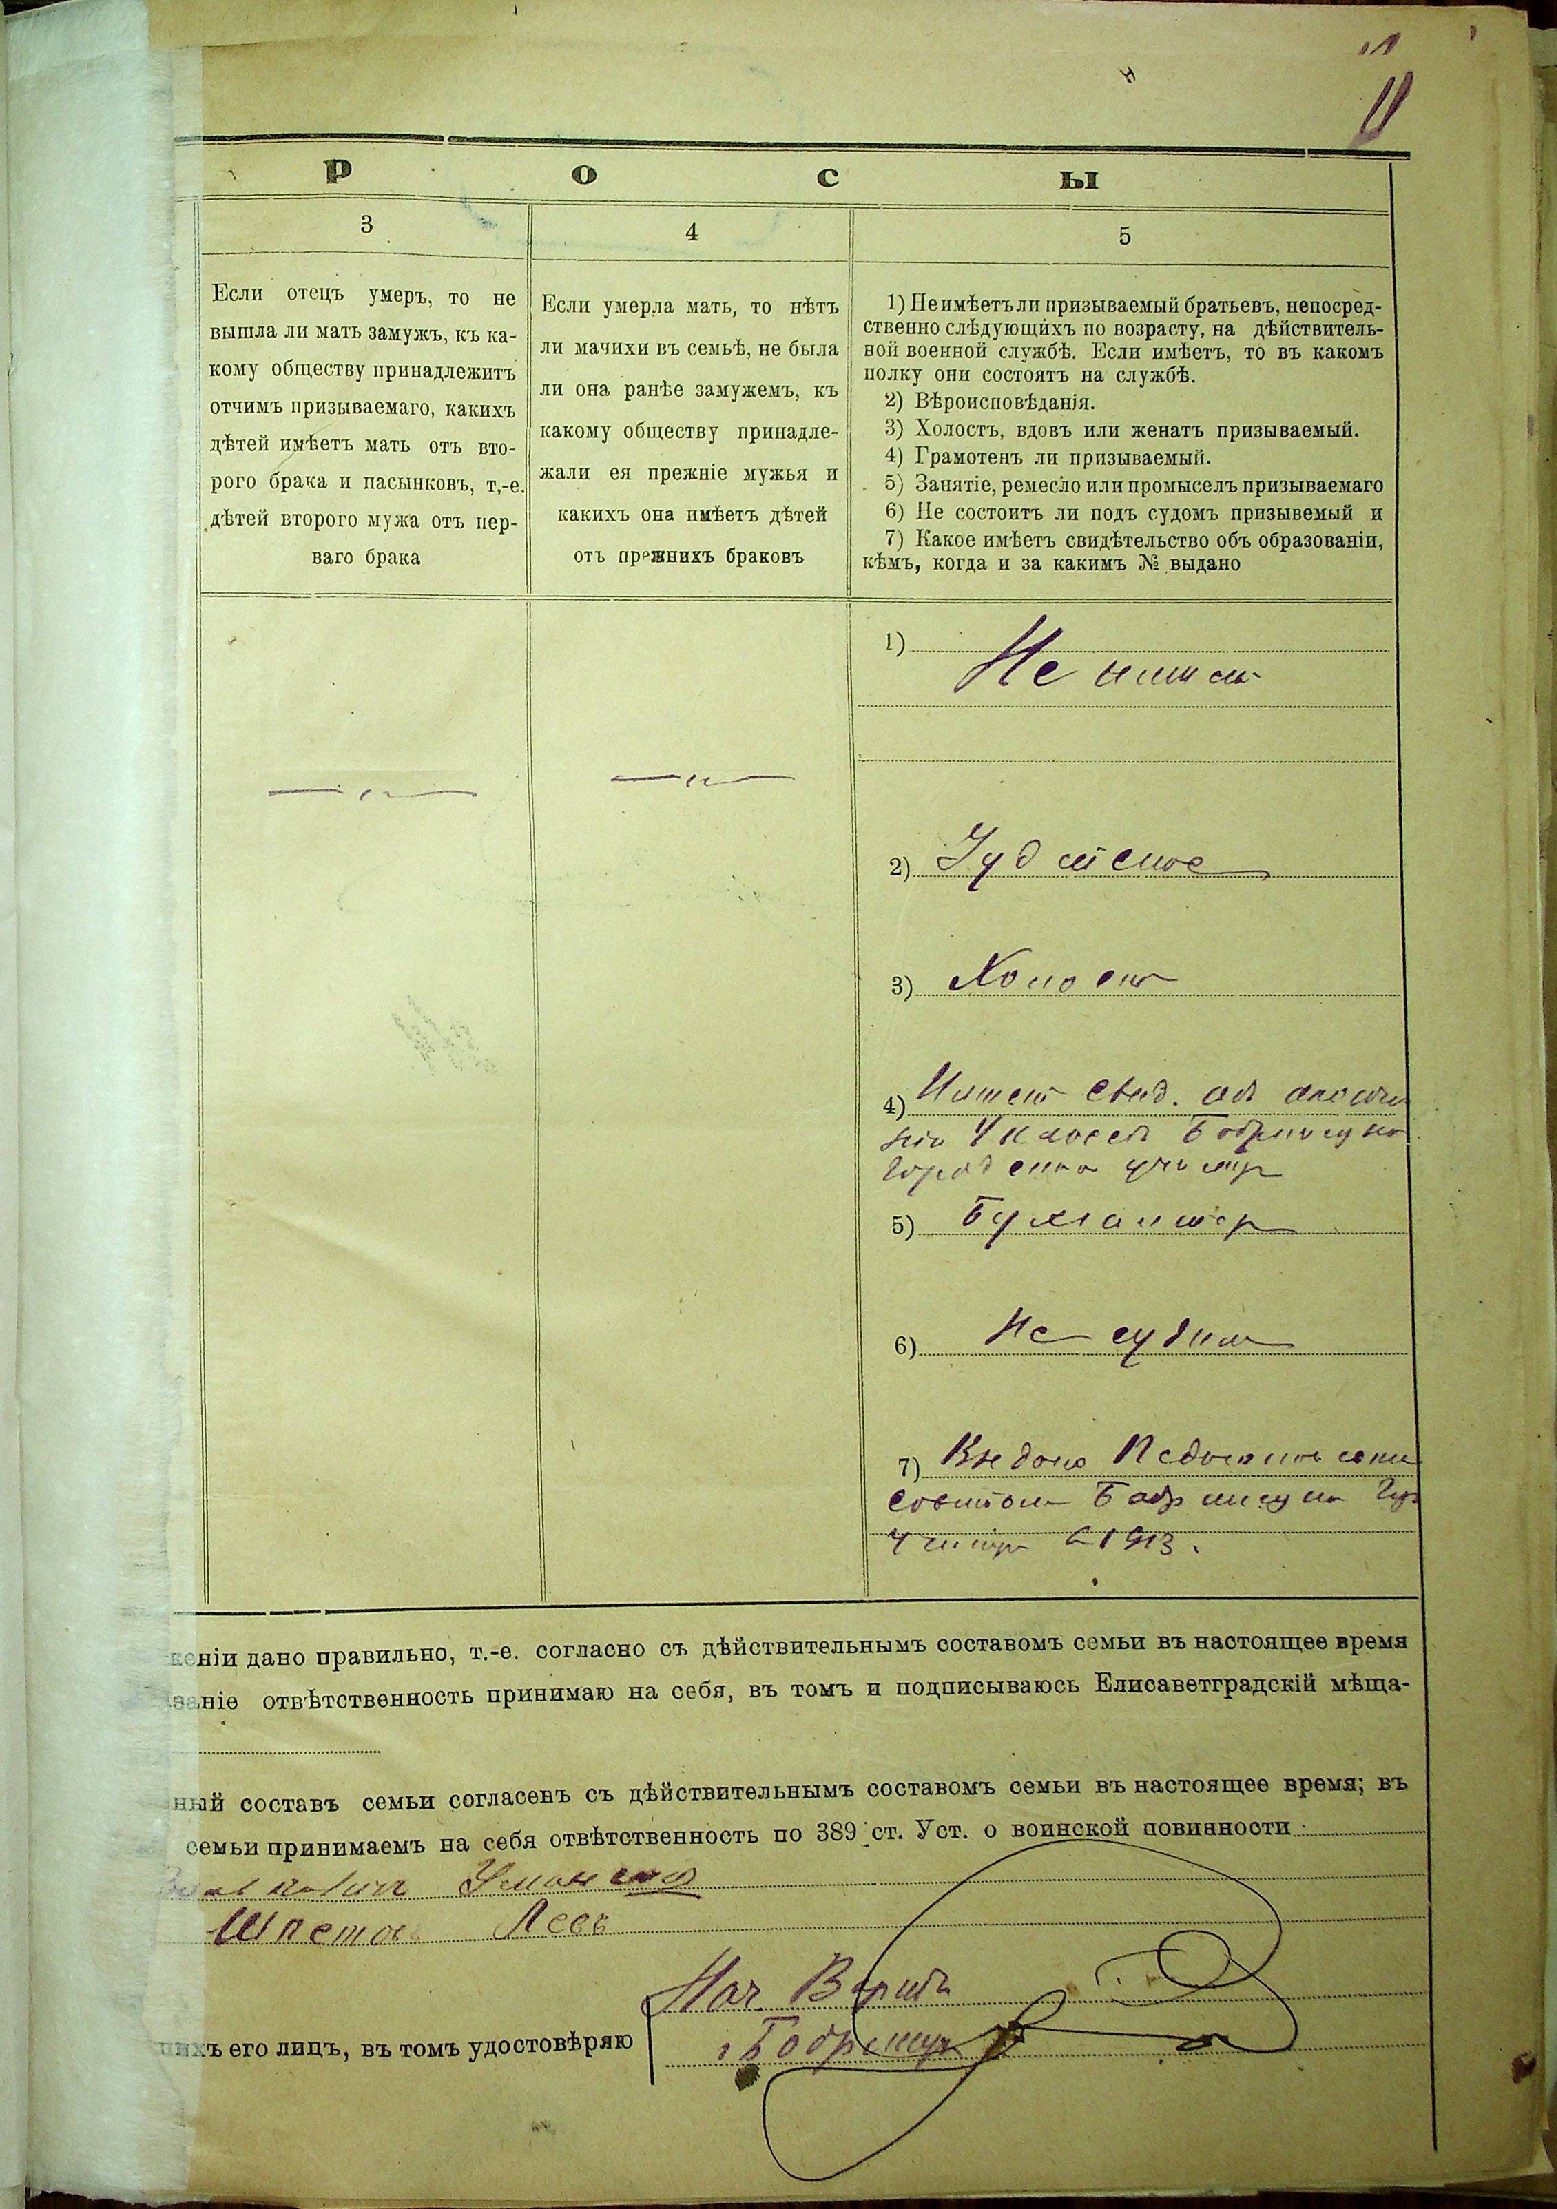 11
Р О С Ы
3
4
5
Если отецъ умеръ, то не
вышла ли мать замужъ, къ ка-
кому обществу принадлежитъ
отчимъ призываемаго, какихъ
дѣтей имѣетъ мать отъ вто-
рого брака и пасынковъ, т,-е.
дѣтей второго мужа отъ пер-
ваго брака
Если умерла мать, то нѣтъ
ли мачихи въ семьѣ, не была
ли она ранѣе замужемъ, къ
какому обществу принадле-
жали ея прежніе мужья и
какихъ она имѣетъ дѣтей
отъ прежнихъ браковъ
1) Не имѣетъ ли призываемый братьевъ, непосред-
ственно слѣдующихъ по возрасту, на дѣйствитель-
ной военной службѣ. Если имѣетъ, то въ какомъ
полку они состоятъ на службѣ.
2) Вѣроисповѣданія.
3) Холостъ, вдовъ или женатъ призываемый.
4) Грамотенъ ли призываемый.
5) Занятіе, ремесло или промыселъ призываемаго
6) Не состоитъ ли подъ судомъ призывемый и
7) Какое имѣетъ свидѣтельство объ образованіи,
кѣмъ, когда и за какимъ № выдано
1)
Не имеет
2) Іудейское
3) Холост
4) Имеет свид. об оконча
нии 4 классов Бобринецко
городского училищ
5) Бухгалтер
6) Не судим
7) Выдано Педагогическим
советом Бобринецко
1913.
еніи дано правильно, т.-е. согласно съ дѣйствительнымъ составомъ семьи въ настоящее время
ваніе отвѣтственность принимаю на себя, въ томъ и подписываюсь Елисаветградскій мѣща-
ный составъ семьи согласенъ съ дѣйствительнымъ составомъ семьи въ настоящее время; въ
семьи принимаемъ на себя отвѣтственность по 389 ст. Уст. о воинской повинности
Уманский
Шпетов Левъ
Нач.
г. Бобринца
ихъ его лицъ, въ томъ удостовѣряю